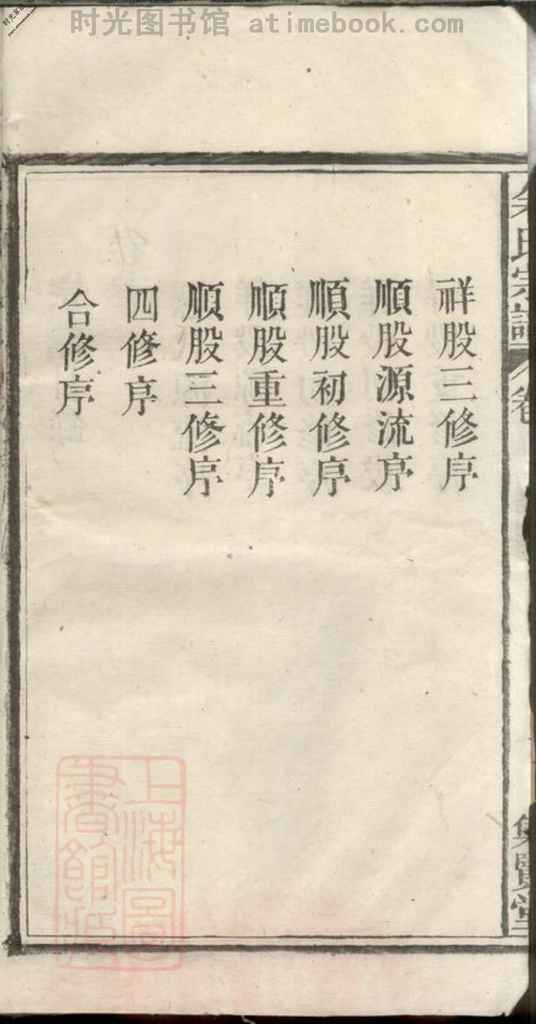 时光图书馆 atimebook.com
祥股三修序
順股源流序
順股初修序
順股重修序
順股三修序
四修序
合修序
氏宗譜
卷
集賢堂
上海圖
書館藏